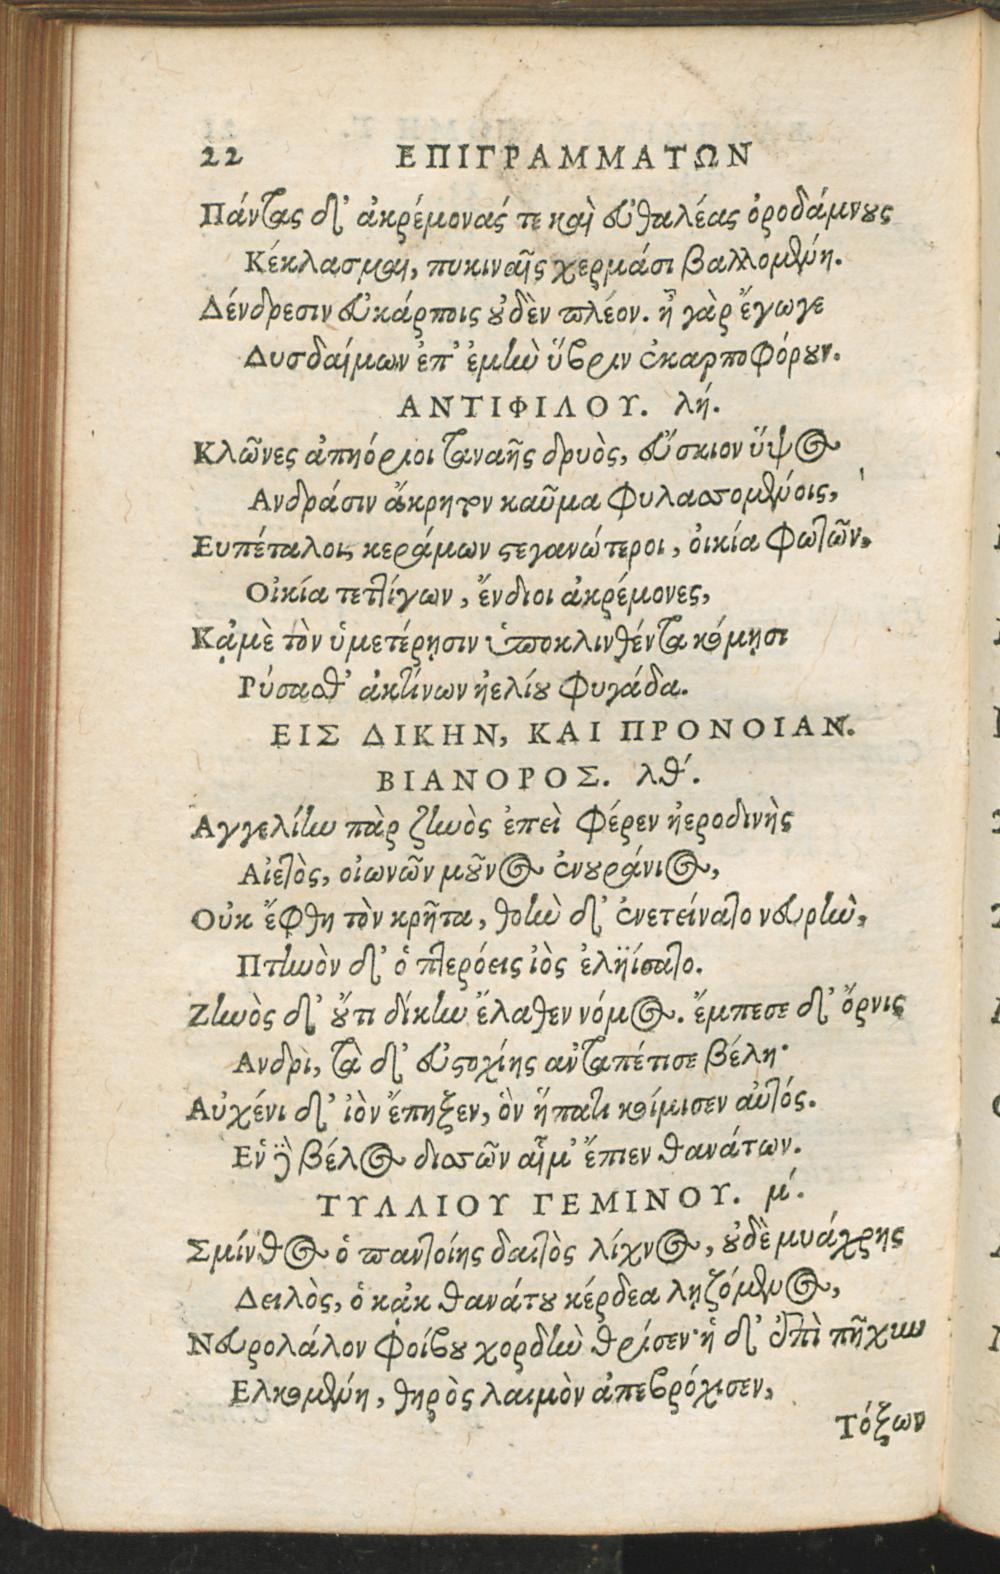 22 ΕΠΙΓΡΑΜΜΑΤΩΝ
Πάντας δ᾽ ἀκρέμονάς τε καὶ εὐθαλέας ὀροδάμνους
Κέκλασμαι, πυκιναῖς χερμάσι βαλλομένη.
Δένδρεσιν εὐκάρποις οὐδὲν πλέον. ἦ γὰρ ἔγωγε
Δυσδαίμων ἐπ᾽ ἐμὴν ὕβριν ἐκαρποφόρουν.
ΑΝΤΙΦΙΛΟΥ. λή.
Κλῶνες ἀπηόριοι ταναῆς δρυὸς, εὔσκιον ὕψος
Ανδράσιν ἄκρητον καῦμα φυλασσομένοις,
Ευπέταλοι, κεράμων στεγανώτεροι, οἰκία φωτῶν,
Οἰκία τεττίγων, ἔνδιοι ἀκρέμονες,
Κᾀμὲ τὸν ὑμετέρῃσιν ὑποκλινθέντα κόμῃσι
Ρύσασθ᾽ ἀκτίνων ἠελίου φυγάδα.
ΕΙΣ ΔΙΚΗΝ, ΚΑΙ ΠΡΟΝΟΙΑΝ.
ΒΙΑΝΟΡΟΣ. λθ΄.
Αγγελίην πὰρ ζηνὸς ἐπεὶ φέρεν ἠεροδινὴς
Αἰετὸς, οἰωνῶν μοῦνος ἐνουράνιος,
Οὐκ ἔφθη τὸν κρῆτα, θοὴν δ᾽ ἐνετείνατο νευρὴν,
Πτηνὸν δ᾽ ὁ πτερόεις ἰὸς ἐληΐσατο.
Ζηνὸς δ᾽ οὔτι δίκην ἔλαθεν νόμος. ἔμπεσε δ᾽ ὄρνις
Ανδρὶ, τὰ δ᾽ εὐστοχίης ἀνταπέτισε βέλη·
Αὐχένι δ᾽ ἰὸν ἔπηξεν, ὃν ἥπατι κοίμισεν αὐτός.
Εν δὲ βέλος δισσῶν αἷμ᾽ ἔπιεν θανάτων.
ΤΥΛΛΙΟΥ ΓΕΜΙΝΟΥ. μ΄.
Σμίνθος ὁ παντοίης δαιτὸς λίχνος, οὐδὲ μυάγρης
Δειλὸς, ὁ κᾀκ θανάτου κέρδεα λῃζόμενος,
Νευρολάλον φοίβου χορδὴν θρίσεν· ἡ δ᾽ ἐπὶ πῆχυν
Ελκομένη, θηρὸς λαιμὸν ἀπεβρόχισεν,
Τόξων